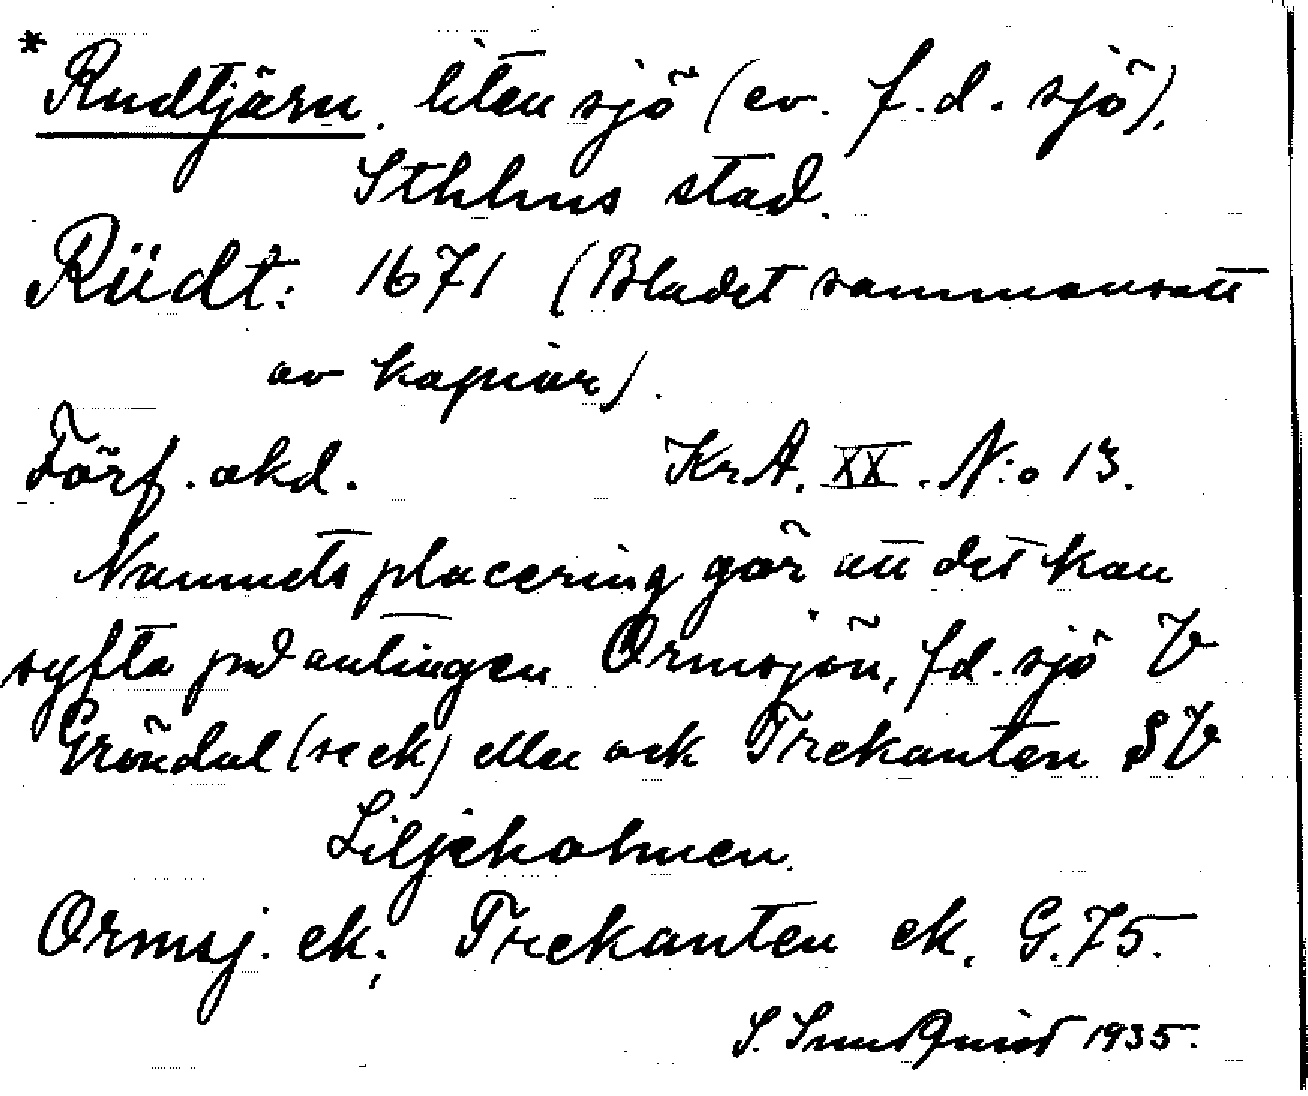 * Rudtjärn. liten sjö (ev. f.d. sjö),
Sthlms stad.
Rüdt: 1671 (Bladet sammansatt
av kopior).
Förf. okd. Kr.A. XX. N:o 13.
Namnets placering gör att det kan
syfta på antingen Ormsjön, f d. sjö V
Gröndal (se ek) eller ock Trekanten SV
Liljeholmen.
Ormsj. ek; Trekanten ek. G. 75.
S. Sundquist 1935.